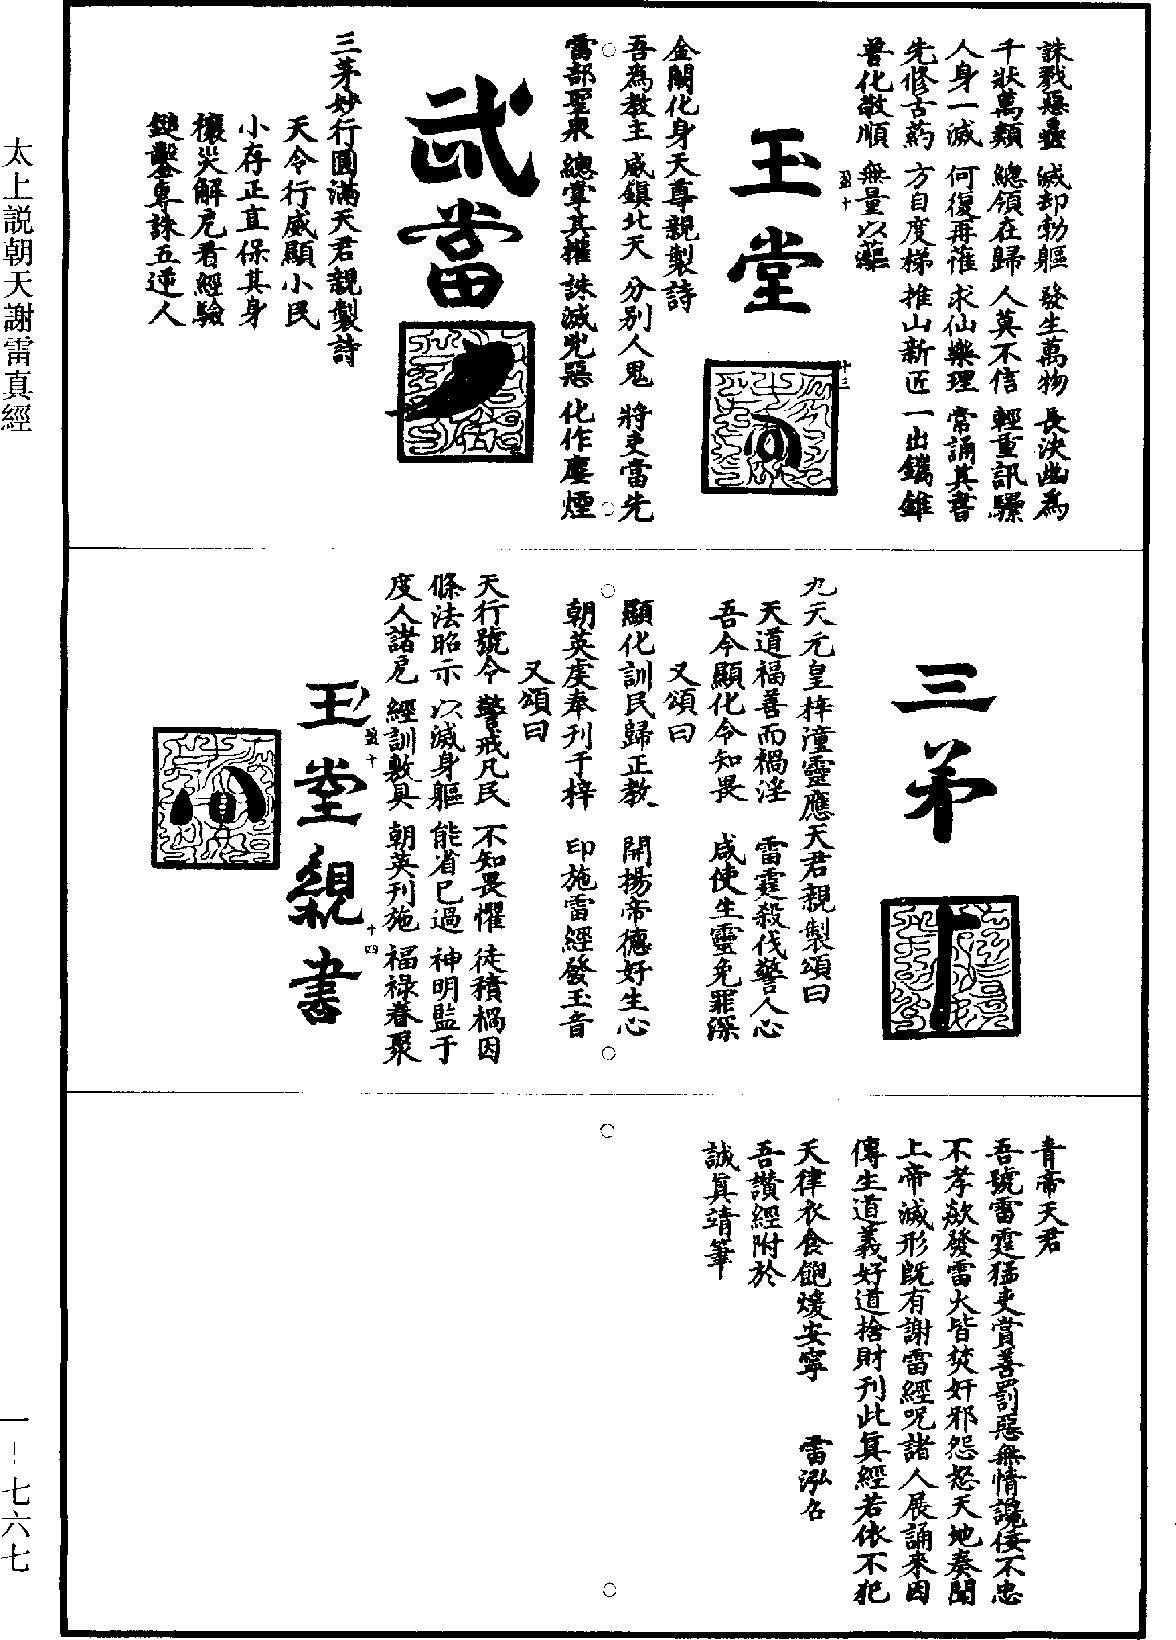 誅戮惡蠱 滅却勃軀 發生萬物 長決幽爲
千狀萬類 總領在歸 人莫不信 輕重訊驟
人身一滅 何復再蓷 求仙樂理 常誦其書
先修舌藥 方自度梯 推山新近 一出鐫錐
普化敬順 無量以
玉堂
盈十
十三
金闕化身天尊親製詩
吾爲教主 威鎮北天 分別人鬼 將吏當先
雷部聖衆 總掌其權 誅滅兇惡 化作塵煙
武當
三茅妙行圓滿天君親製詩
天令行威顯小民
小存正直保其身
禳災解厄看經驗
鎚鑿專誅五逆人
三茅
九天元皇梓潼靈應天君親製頌曰
天道福善而禍淫 雷霆殺伐警人心
吾今顯化令知畏 咸使生靈免罪深
又頌曰
顯化訓民歸正教 開揚帝德好生心
朝英虔奉刊于梓 印施雷經發玉音
又頌曰
天行號令 警戒凡民 不知畏懼 徒積禍因
條法昭示 以滅身軀 能省已過 神明監于
度人諸厄 經訓敷具 朝英刊施 福祿春聚
玉堂親書
盈十
十四
青帝天君
吾號雷霆猛吏賞善罰惡無情讒佞不忠
不孝歘發雷火皆焚奸邪怨怒天地奏聞
上帝滅形旣有謝雷經呪諸人展誦來因
傳生道義好道捨財刊此眞經若依不犯
天律衣食飽煖安寧 雷泓名
吾讚經附於
誠眞靖筆
太上説朝天謝雷真經
一—七六七